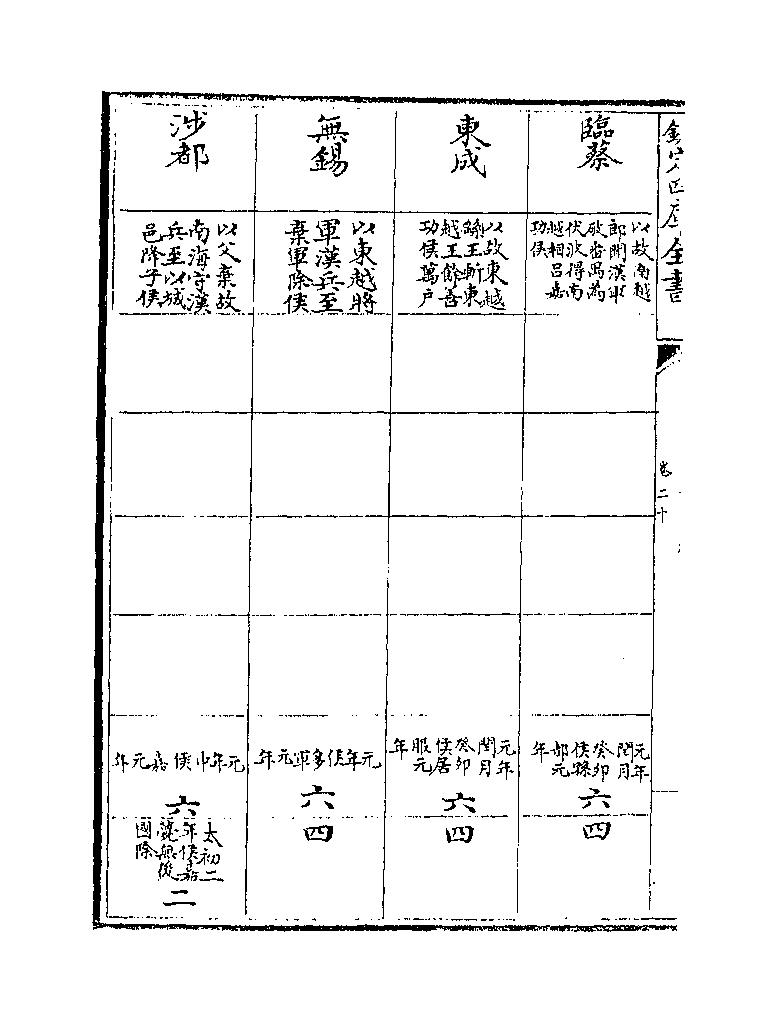 欽定四庫全書
卷二十
臨蔡
以故南越
郎聞漢軍
破番禺為
伏波得南
越相呂嘉
功侯
元年
閏月
癸卯
侯孫
都元
年
六
四
東成
以故東越
繇王斬東
越王餘善
功侯萬户
元年
閏月
癸卯
侯居
服元
年
六
四
無錫
以東越將
軍漢兵至
棄軍降侯
元年侯多軍元年
六
四
涉都
以父棄故
南海守漢
兵至以城
邑降子侯
元年中侯嘉元年
六
太初二
年侯嘉
薨無後
國除
二